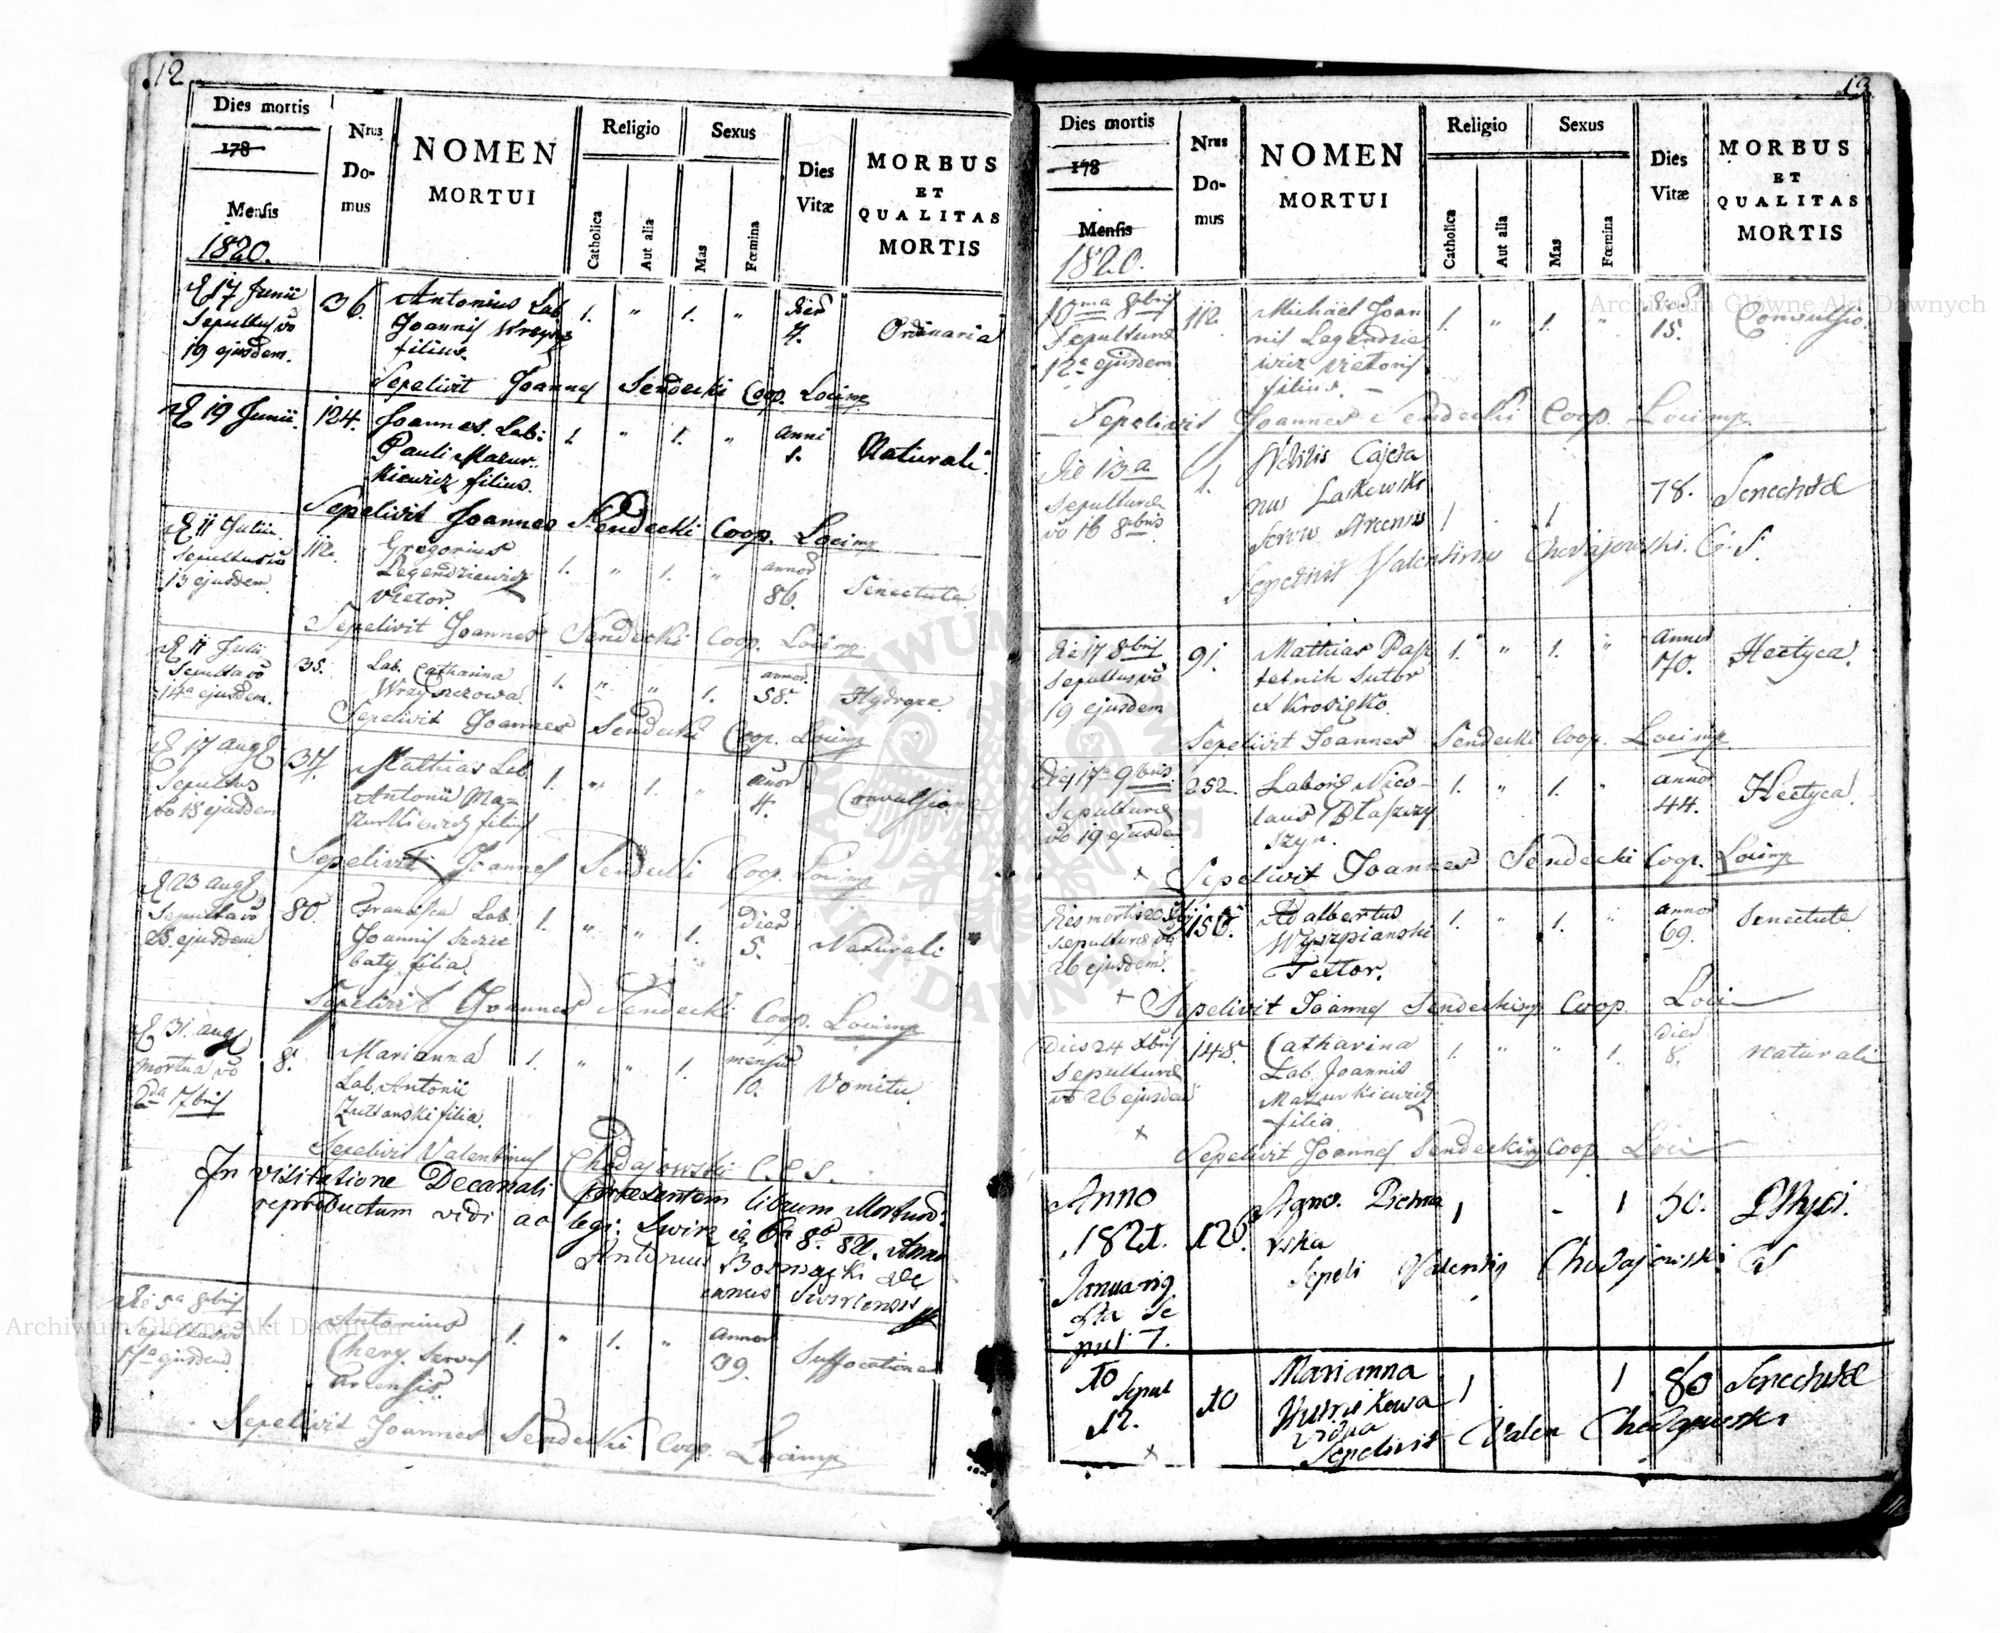 12
Dies mortis
178
Mensis
1820.
Nrus
Do-
mus
NOMEN
MORTUI
Religio
Catholica
Aut alia
Sexus
Mas
Fœmina
Dies
Vitæ
MORBUS
ET
QUALITAS
MORTIS
17 Junii
Sepultus vo
19 ejusdem.
36.
Antonius Lab
Joannis
filius.
1. " 1. "
dier
4.
Ordinaria
Sepelivit Joannes Sendecki Coop. Locimp
19 Junii.
124.
Joannes. Lab:
Pauli Mazur-
kiewicz filius.
1. " 1. "
Anni
1.
Naturali.
Sepelivit Joannes Sendecki Coop. Locimp
11 Julii.
Sepultus vo
13 ejusdem.
112.
Gregorius
Legendziewicz
Vietor.
1. " 1. "
annor
86.
Senectute.
Sepelivit Joannes Sendecki Coop. Locimp.
11 Julii
Sepulta vo
14a ejusdem.
35.
Lab. Catharina
Wrzyszczowa.
1. " " 1.
annor.
58.
Hydrope.
Sepelivit Joannes Sendecki Coop. Locimp
17 aug
Sepultus
vo 18 ejusdem
37.
Mathias Lab.
Antonii Ma-
zurkiewicz filius
1. " 1. "
annor
4.
Convulsione
Sepelivit Joannes Sendecki Coop. Locimp
23 aug
Sepulta vo
25. ejusdem
80.
Francisca Lab.
Joannis
baty filia.
1. " " 1.
Dier
5.
Naturali
Sepelivit Joannes Sendecki Coop. Locimp
31. aug
mortua vo
2da 7bris
8.
Marianna
Lab. Antonii
filia.
1. " " 1.
mensiu
10.
Vomitu.
Sepelivit Valentinus Chodajowski C.C.S.
In visitatione Decanali Praesentem librum Mortuor
reproductum vidi ac legi. Swirz
Antonius
Decanus Swirzensis
5a 8bris
Sepultus vo
7a ejusdem.
1.
Antonius
Chery. Servus
arcensis.
1. " 1. "
Annor
39.
Suffocatione
Sepelivit Joannes Sendecki Coop. Locimp
13.
Dies mortis
178
Mensis
1820.
Nrus
Do-
mus
NOMEN
MORTUI
Religio
Catholica
Aut alia
Sexus
Mas
Fœmina
Dies
Vitæ
MORBUS
ET
QUALITAS
MORTIS
10ma 8bris
Sepulturae
12a ejusdem
112.
Michael Joan
nis Legendzie
wicz vietoris
filius.
1. " 1. "
15.
Convulsio.
Sepelivit Joannes Sendecki Coop. Locimp.
Die 13a
Sepulturae
vo 16 8bris.
1.
Nobilis Cajeta
nus Laskowski
Servus Arcensis
1 . 1
78.
Senectute
Sepelivit Valentinus Chodajowski. C. S.
Die 17 8bris
Sepultus vo
19 ejusdem
91.
Mathias Pasz
tetnik Sutor
x Krosigko.
1. " 1. "
Annor
70.
Hectyca.
Sepelivit Joannes Sendecki Coop. Locimp
Die 17a 9bris
Sepulturae
vo 19 ejusdem
252.
Labors Nico-
laus Błaszczy
szyn.
1. " 1. "
annor
44.
Hectyca.
x Sepelivit Joannes Sendecki Coop. Locimp
Dies mortis 20
Sepulturae vo
26 ejusdem.
156.
Adalbertus
Wyszpianski
Textor.
1. " 1. "
annor
69.
Senectute
+ Sepelivit Joannes Sendecki mp Coop. Loci
Dies 24 Xbris
Sepulturae
vo 26 ejusdem
x
148.
Catharina
Lab. Joannis
Mazurkiewicz
filia.
1. " " 1.
Dier
8.
Naturali
Sepelivit Joannes Sendecki mp Coop. Loci
Anno
1821.
Januarij
5ta Se
pul 7.
126.
Agno.
1 - 1
50.
Phtysi.
Sepeli Valentin Chodajowski
10
Sepul
12.
x
10
Marianna
vidua
1 1
80
Senectute
Sepelivit Valen Chodajowski
Archiwum Główne Akt Dawnych
Archiwum Główne Akt Dawnych
ARCHIWUM GŁÓWNE AKT DAWNYCH